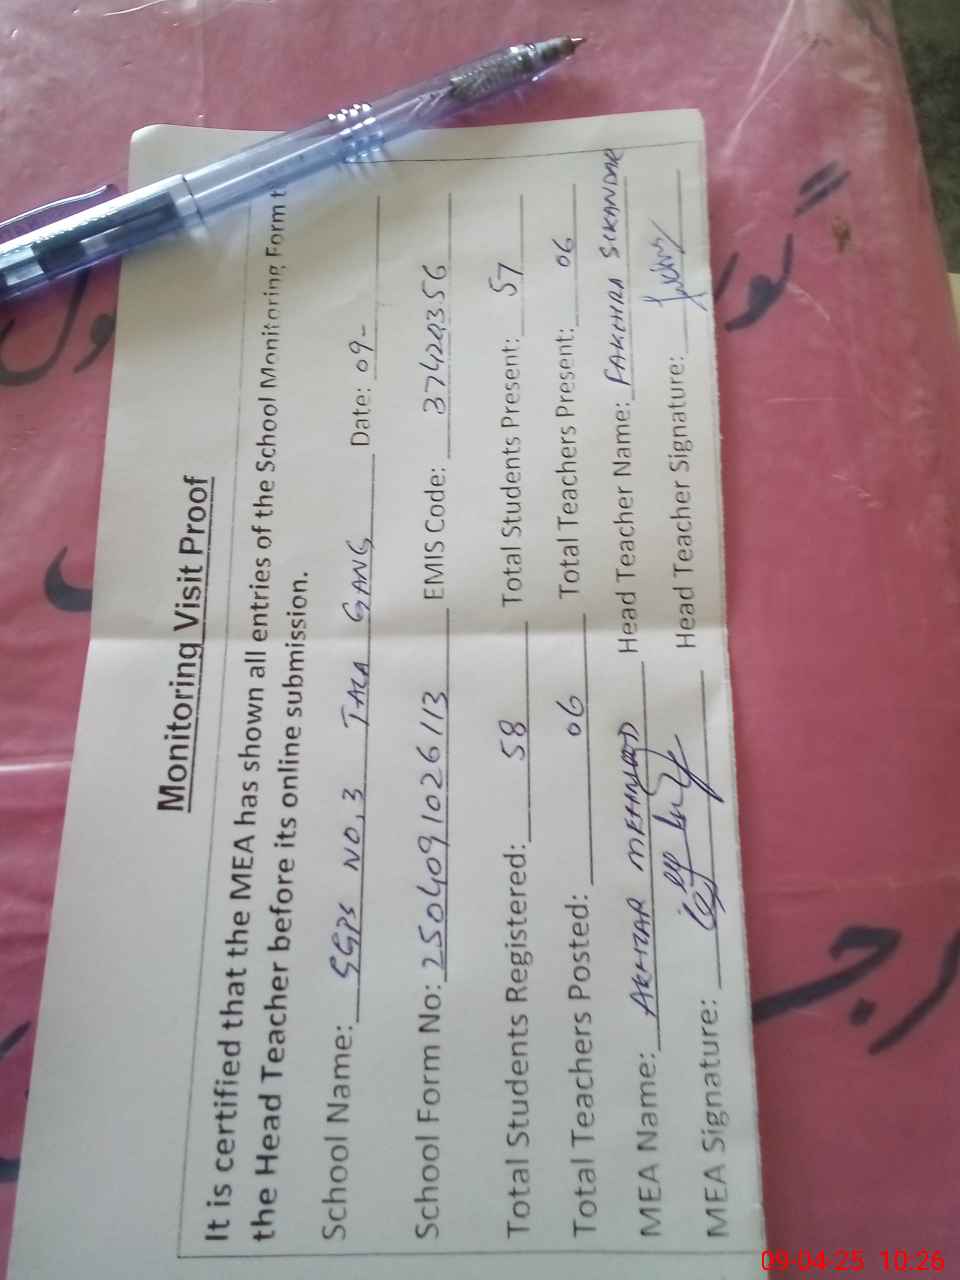 Monitoring Visit Proof
It is certified that the MEA has shown all entries of the School Monitoring Form t
the Head Teacher before its online submission.
School Name: GGPS NO.3 TALA GANG Date: 09-
School Form No: 250409 1026 113 EMIS Code: 37420356
Total Students Registered: 58 Total Students Present: 57
Total Teachers Posted: 06 Total Teachers Present: 06
MEA Name: AKHTAR MEHMOOD Head Teacher Name: FAKHRA SIKANDAR
MEA Signature: Head Teacher Signature:
09-04-25 10:26